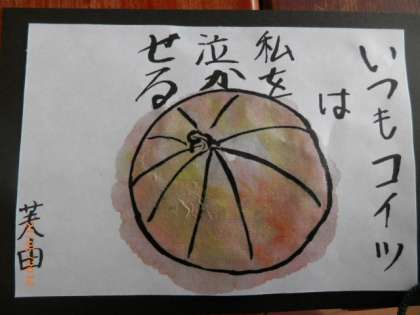 いつもコイツ
は
私を
泣か
せる